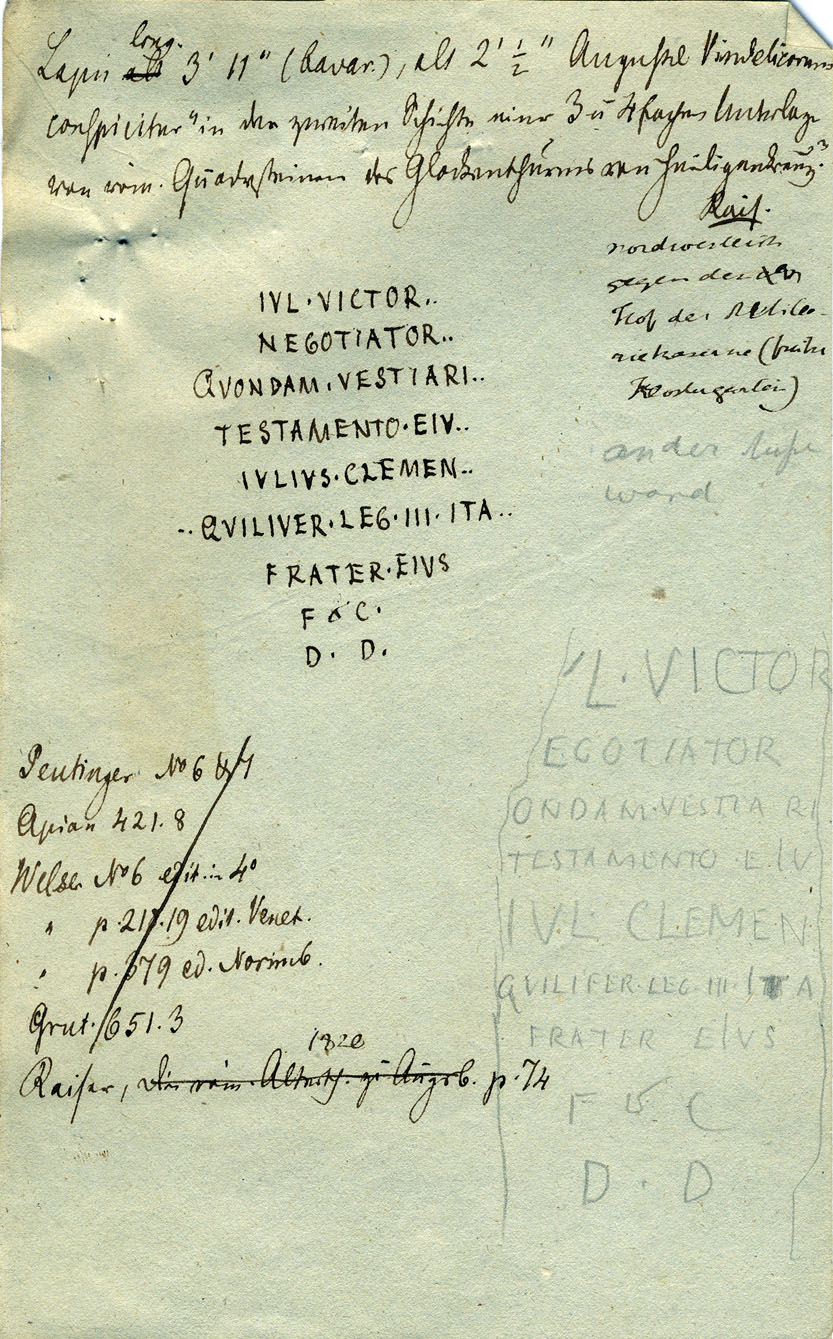 long.
Lapis alt 3' 11" (bavar.), alt 2' ½" Augustae Vindelicorum
conspicitur "in der zweiten Schichte einer 3 u 4fachen Unterlage
von röm. Quadersteinen des Glockenthurms von Heiligenkreuz."
Rais.
nordwestlich
gegen den
Hof der Artille-
riekaserne (früher
Klostergarten)
an der
wand
IVL·VICTOR..
NEGOTIATOR..
QVONDAM·VESTIARI..
TESTAMENTO·EIV..
IVLIVS·CLEMEN..
..QVILIVER·LEG·III·ITA..
FRATER·EIVS
F & C·
D· D·
L·VICTOR
EGOTIATOR
ONDAM·VESTIARI
TESTAMENTO E·IV
IVL· CLEMEN
QVILIFER·LEG·III·ITA
FRATER EIVS
F & C
D · D
Peutinger No 6 & 7
Apian 421.8
Welser No 6 edit. in 4o
" p. 217.19 edit. Venet.
" p. 379 ed. Norimb.
Grut. 651.3
1820
Raiser, die röm. Alterth. zu Augsb. p. 74